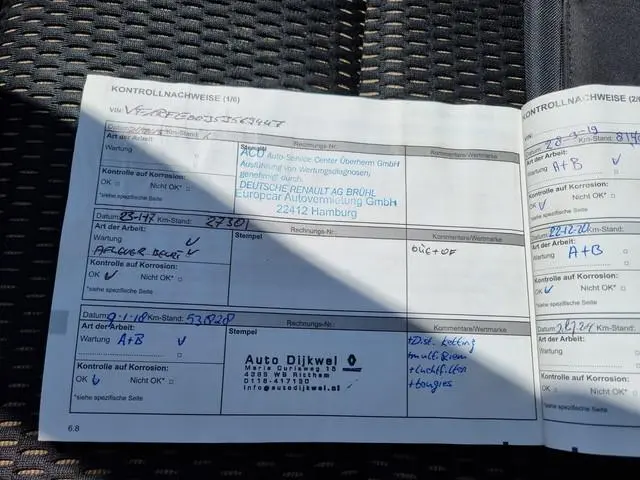 KONTROLLNACHWEISE (1/6)
VIN:
Km-Stand:
Art der Arbeit
Wartung
Kontrolle auf Korrosion:
OK Nicht OK*
*siehe spezifische Seite
Stempel
Rechnungs-Nr.:
ACU Auto-Service Center Überherrn GmbH
Ausführung von Wartungsdiagnosen,
genehmigt durch:
DEUTSCHE RENAULT AG BRÜHL
Europcar Autovermietung GmbH
22412 Hamburg
Kommentare/Wertmarke
Datum: 23-1-17 Km-Stand: 27301
Art der Arbeit:
Wartung ✓
AFLEVER BEURT ✓
Kontrolle auf Korrosion:
OK ✓ Nicht OK*
*siehe spezifische Seite
Rechnungs-Nr.:
Stempel
Kommentare/Wertmarke
OLIE+OF
Datum: 9-1-18 Km-Stand: 53828
Art der Arbeit:
Wartung A+B ✓
Kontrolle auf Korrosion:
OK ✓ Nicht OK*
*siehe spezifische Seite
Rechnungs-Nr.:
Stempel
Auto Dijkwel
RENAULT
Marie Curieweg 15
4389 WB Ritthem
0118-417130
info@autodijkwel.nl
Kommentare/Wertmarke
+Dist. ketting
+multiRiem
+Luchtfilter
+bougies
6.8
KONTROLLNACHWEISE (2/6)
VIN:
Datum: 28-3-19 Km-Stand:
Art der Arbeit:
Wartung A+B ✓
Kontrolle auf Korrosion:
OK ✓ Nicht OK*
*siehe spezifische Seite
Km-Stand:
Art der Arbeit:
Wartung A+B
Kontrolle auf Korrosion:
OK ✓ Nicht OK*
*siehe spezifische Seite
Datum: Km-Stand:
Art der Arbeit:
Wartung
Kontrolle auf Korrosion:
OK Nicht OK*
*siehe spezifische Seite